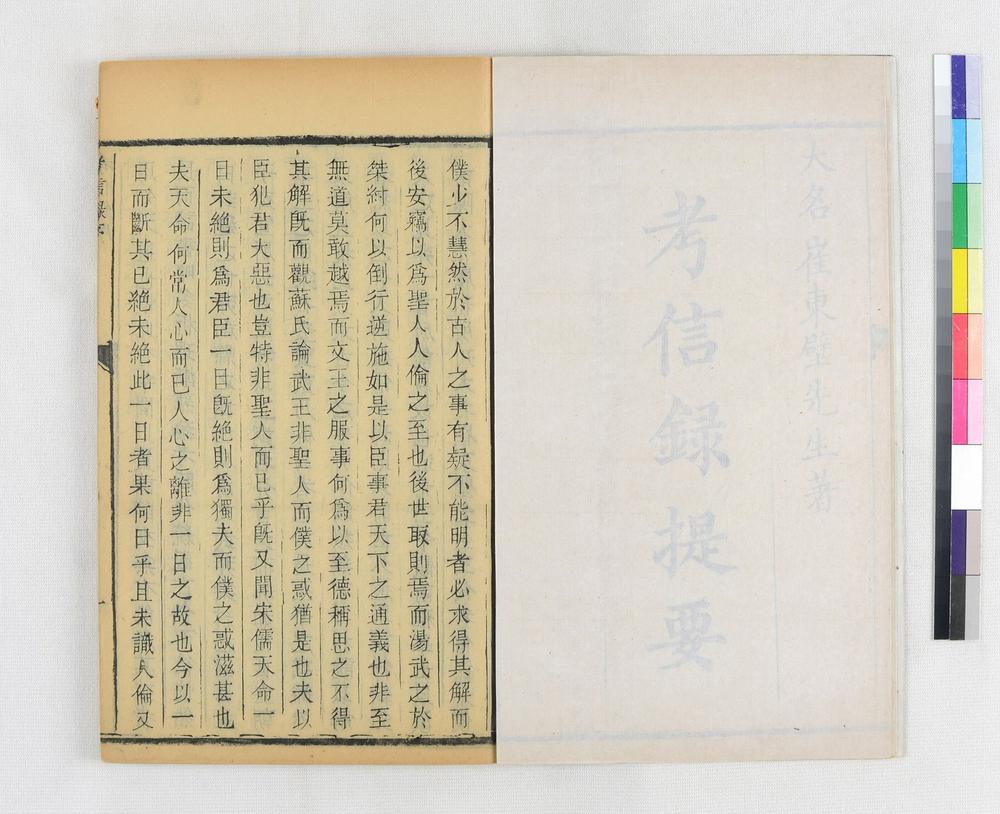 大名崔東壁先生著
考信錄提要
僕少不慧然於古人之事有疑不能明者必求得其解而
後安竊以爲聖人人倫之至也後世取則焉而湯武之於
桀紂何以倒行逆施如是以臣事君天下之通義也非至
無道莫敢越焉而文王之服事何爲以至德稱思之不得
其解旣而觀蘇氏論武王非聖人而僕之惑猶是也夫以
臣犯君大惡也豈特非聖人而已乎旣又聞宋儒天命一
日未絕則爲君臣一日旣絕則爲獨夫而僕之惑滋甚也
夫天命何常人心而已人心之離非一日之故也今以一
日而斷其已絕未絕此一日者果何日乎且未識人倫又
考信錄序